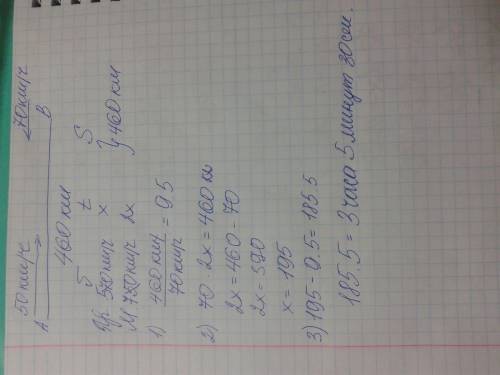 50 км/ч 70 км/ч
A B
460 км
v t S
Гр. 50 км/ч x
М 70 км/ч 2x } 460 км
1) 460 км/ч / 70 км/ч = 9.5
2) 70 · 2x = 460 км
2x = 460 - 70
2x = 390
x = 195
3) 195 - 9.5 = 185.5
185.5 = 3 часа 5 минут 30 сек.